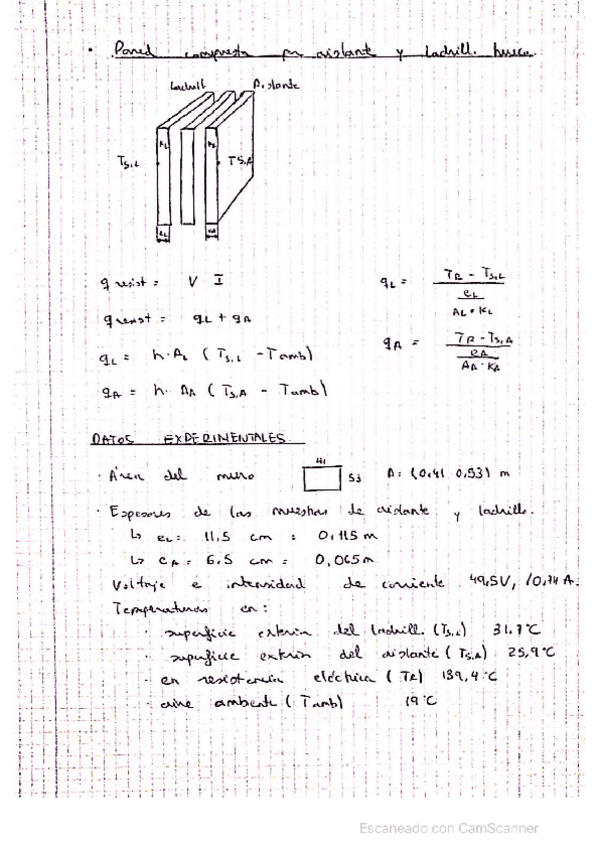 · Pared compuesta por aislante y ladrill. hueco.
Ladrill Aislante
KL KA
TS,L TS,A
eL eA
q resist = V I
qL = TR - TS,L / eL / AL · KL
q resist = qL + qA
qA = TR - TS,A / eA / AA · KA
qL = h · AL (TS,L - Tamb)
qA = h · AA (TS,A - Tamb)
DATOS EXPERIMENTALES
· Área del muro 41 53 A: (0,41 0,53) m
· Espesores de las muestras de aislante y ladrillo.
↳ eL = 11,5 cm = 0,115 m
↳ eA = 6,5 cm = 0,065 m
Voltaje e intensidad de corriente 49,5V, 10,74 A.
Temperaturas en:
· superficie exterior del ladrill. (TS,L) 31.7°C
· superficie exterior del aislante (TS,A) 25,9°C
· en resistencia eléctrica (TR) 139,4°C
· aire ambiente (Tamb) 19°C
Escaneado con CamScanner